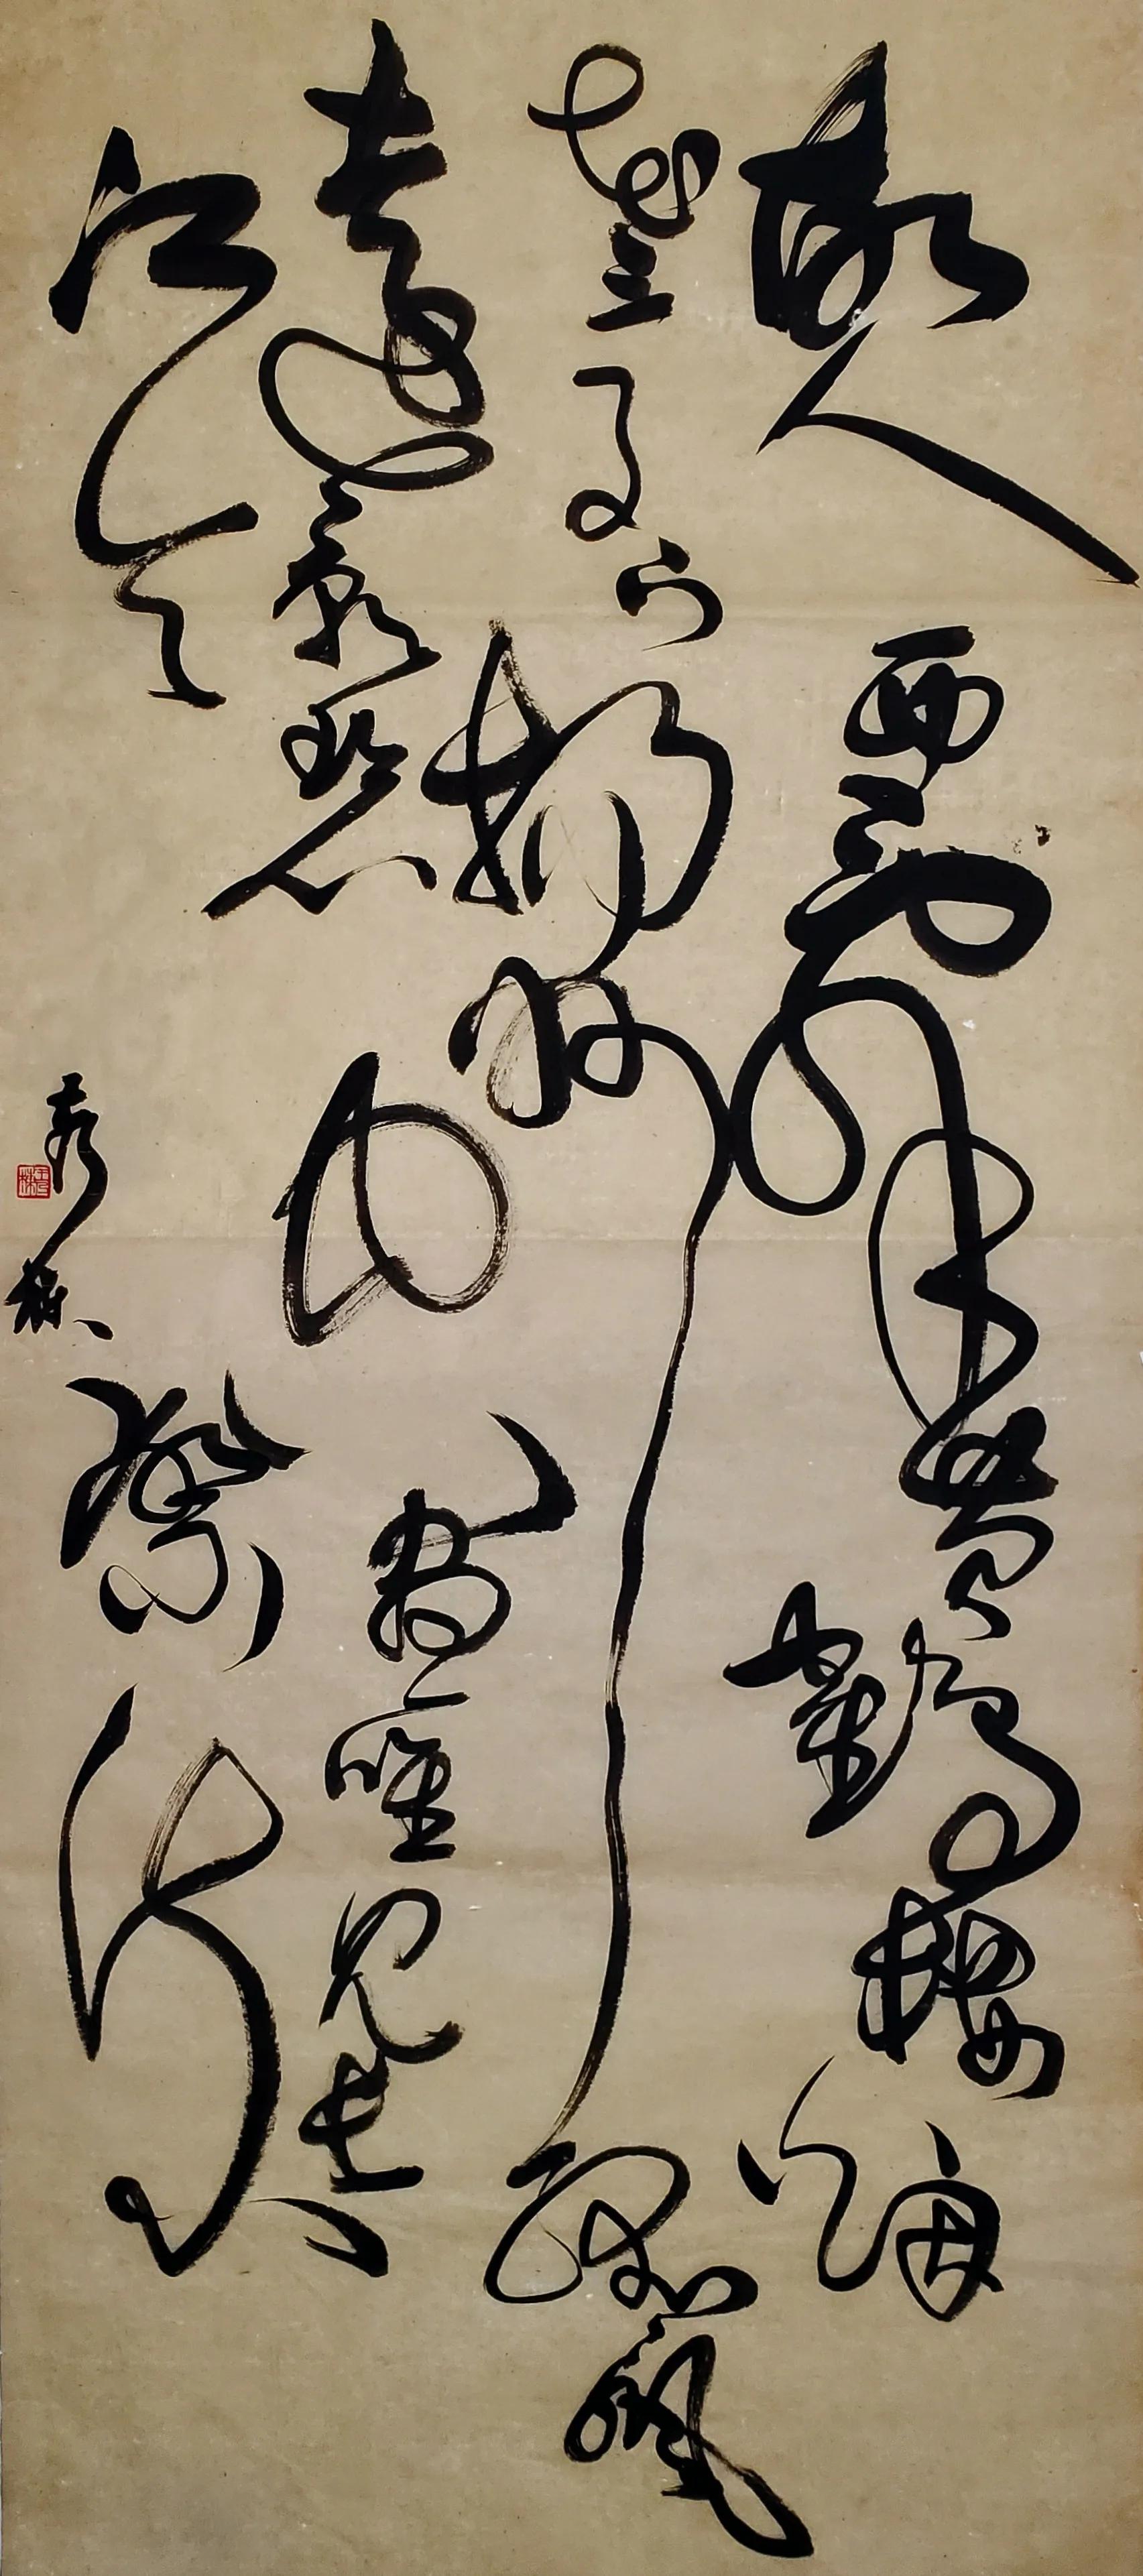 故人西辭黃鶴樓煙
花三月下揚州孤帆
遠影碧山盡唯見長
江天際流